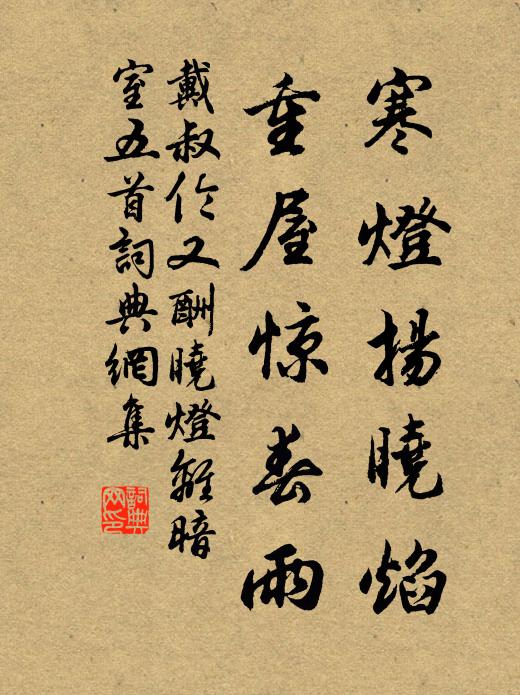 寒燈揚曉焰
重屋惊春雨
戴叔伦又酬曉燈離暗
室五首詞典網集
詞典
网印